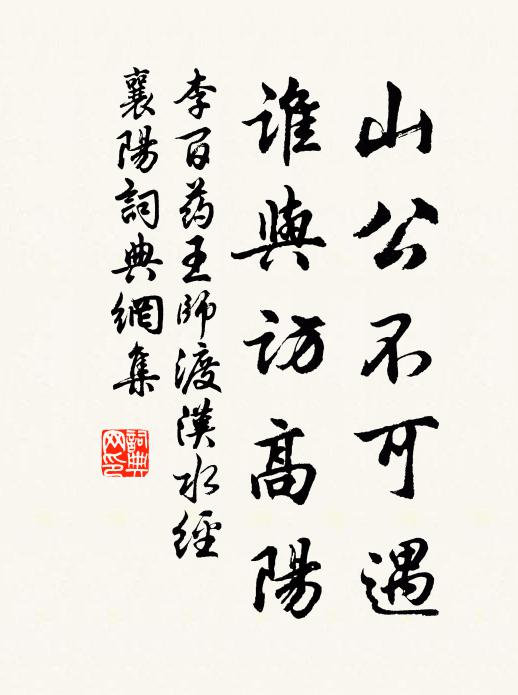 山公不可遇
誰與訪高陽
李百药王師渡漢水經
襄陽詞典網集
詞典
网印